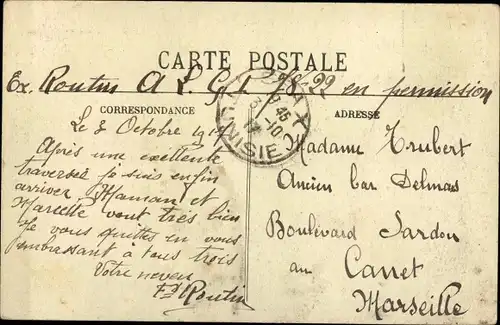 CARTE POSTALE
Ex. Routin A L G I 78-22 en permission
CORRESPONDANCE
ADRESSE
Le 3 Octobre 1917
Après une exellente
traversée je suis enfin
arriver Maman et
Marcelle vont très bien
Je vous quittes en vous
embrassant à tous trois
Votre neveu
Routin
3 45
3 -10
17
TUNISIE
Madame Trubert
Ancien bar Delmas
Boulevard Jardon
au Canet
Marseille